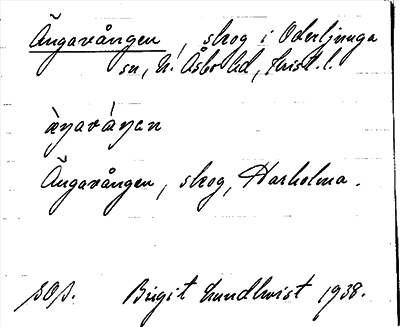 Ängavången, skog i Oderljunga
sn, N. Åsbo hd, Krist. l.
Ängavången, skog, Harholma.
Birgit Lundkvist 1938.